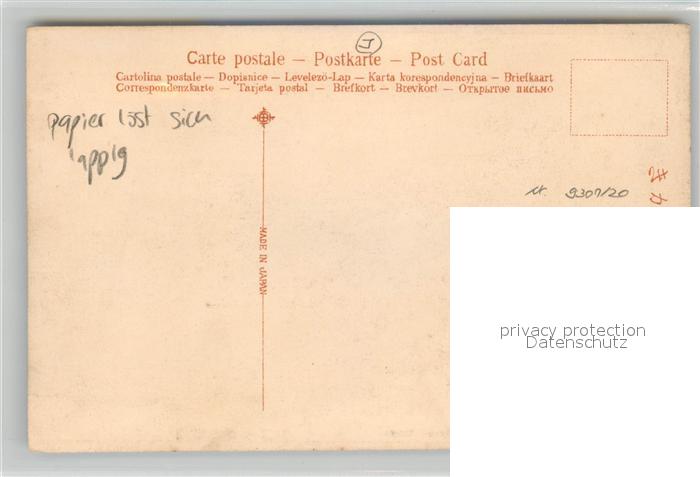 J
Carte postale — Postkarte — Post Card
Cartolina postale — Dopisnice — Levelezö-Lap — Karta korespondencyjna — Briefkaart
Correspondenzkarte — Tarjeta postal — Brefkort — Brevkort — Открытое письмо
papier löst sich
lappig
9307/20
MADE IN JAPAN
privacy protection
Datenschutz